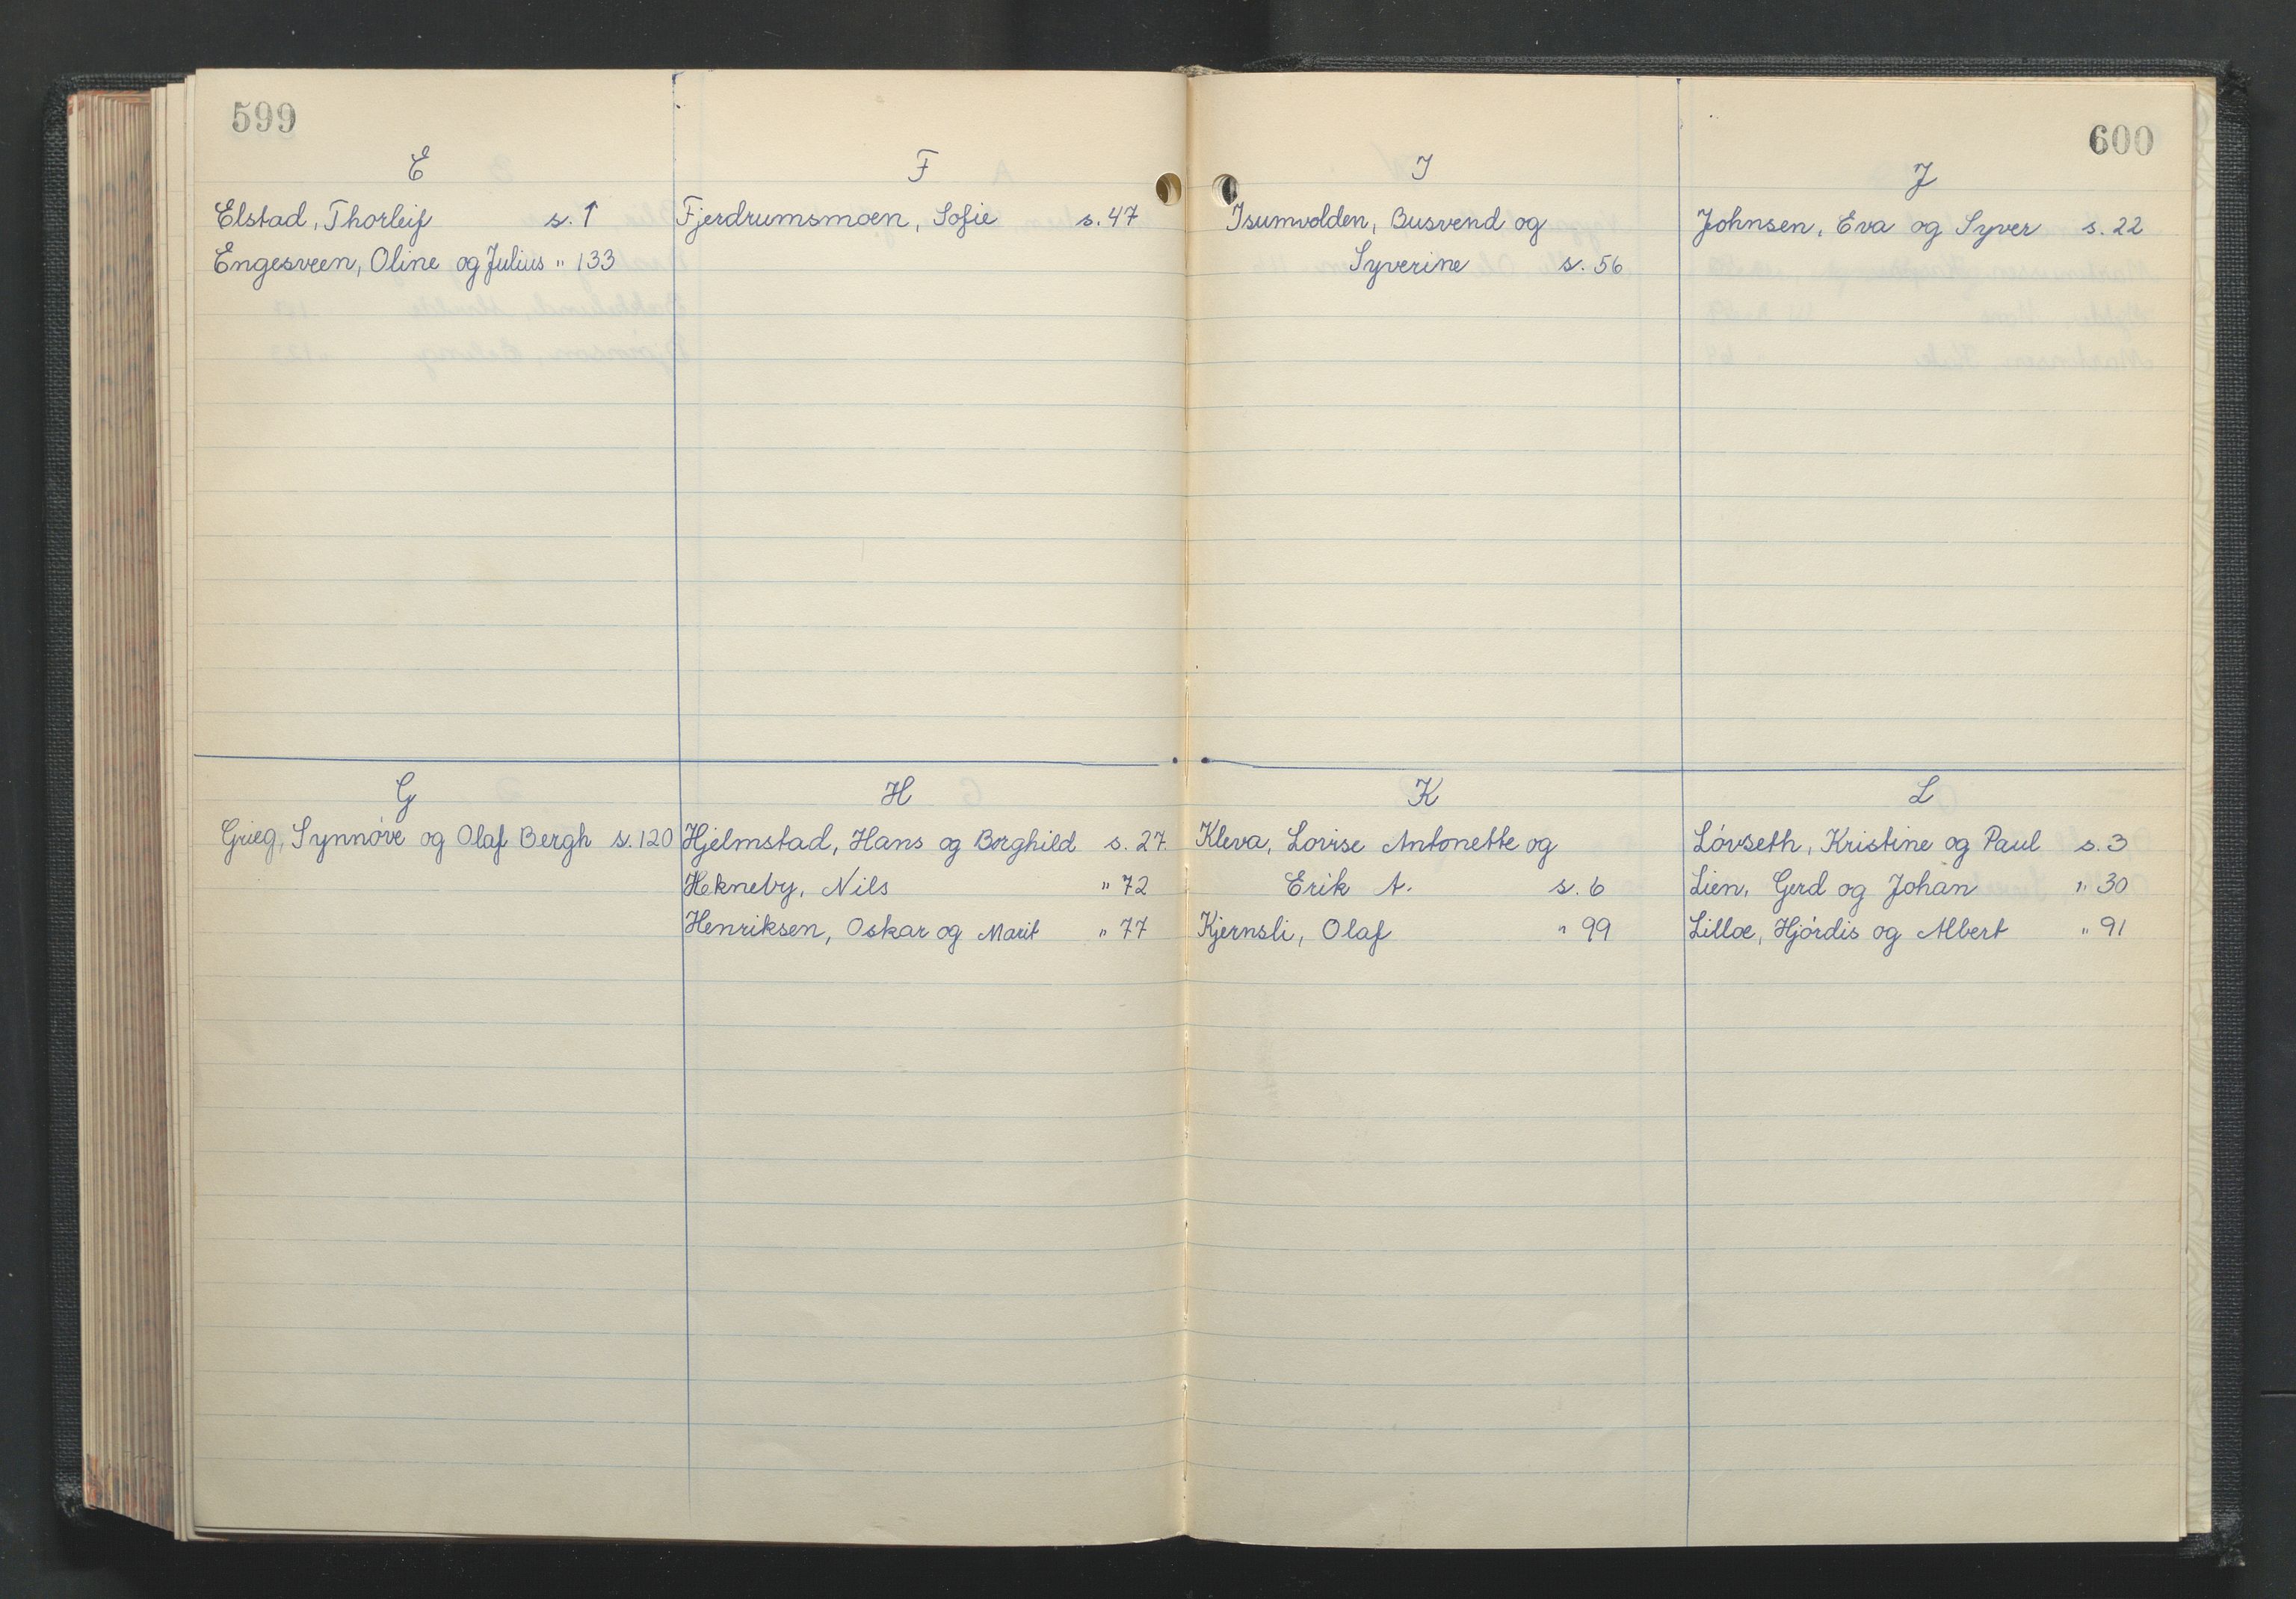 599
E
Elstad, Thorleif s. 1
Engesveen, Oline og Julius " 133
F
Fjerdrumsmoen, Sofie s. 47
G
Grieg, Synnøve og Olaf Bergh s. 120
H
Hjelmstad, Hans og Borghild s. 27.
Hekneby, Nils " 72
Henriksen, Oskar og Marit " 77
600
I
Isumvolden, Busvend og
Syverine s. 56
J
Johnsen, Eva og Syver s. 22
K
Kleva, Lovise Antonette og
Erik A. s. 6
Kjernsli, Olaf " 99
L
Løvseth, Kristine og Paul s. 3
Lien, Gerd og Johan " 30
Lilloe, Hjørdis og Albert " 91